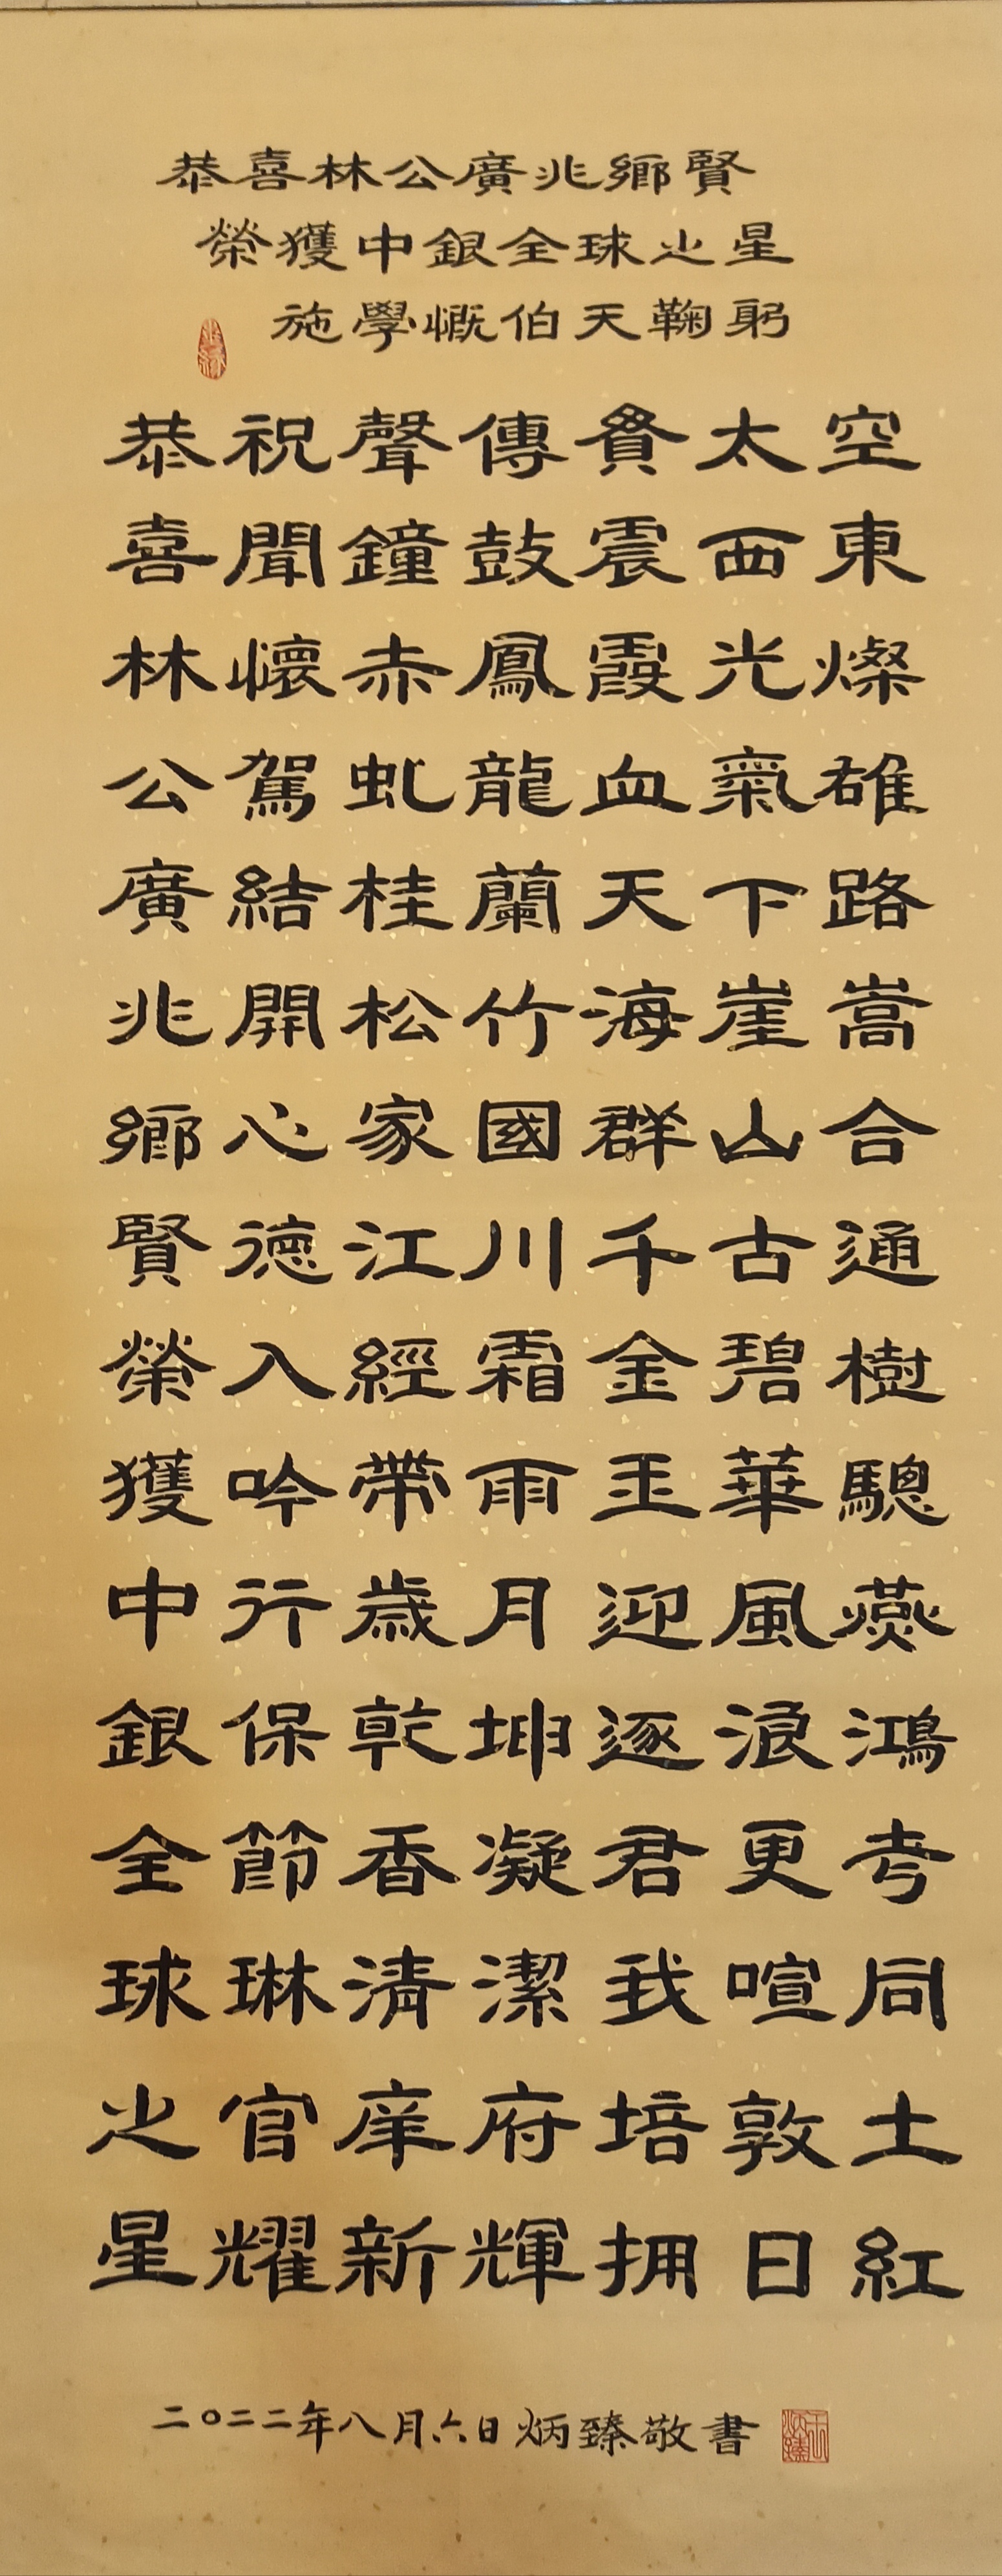 恭喜林公廣兆鄉賢
榮獲中銀全球之星
施學慨伯天鞠躬
恭祝聲傳貫太空
喜聞鐘鼓震西東
林懷赤鳳霞光燦
公駕虬龍血氣雄
廣結桂蘭天下路
兆開松竹海崖嵩
鄉心家國群山合
賢德江川千古通
榮入經霜金碧樹
獲吟帶雨玉華驄
中行歲月迎風燕
銀保乾坤逐浪鴻
全節香凝君更考
球琳清潔我喧同
之官庠府培敦土
星耀新輝拥日紅
二〇二二年八月六日炳臻敬書